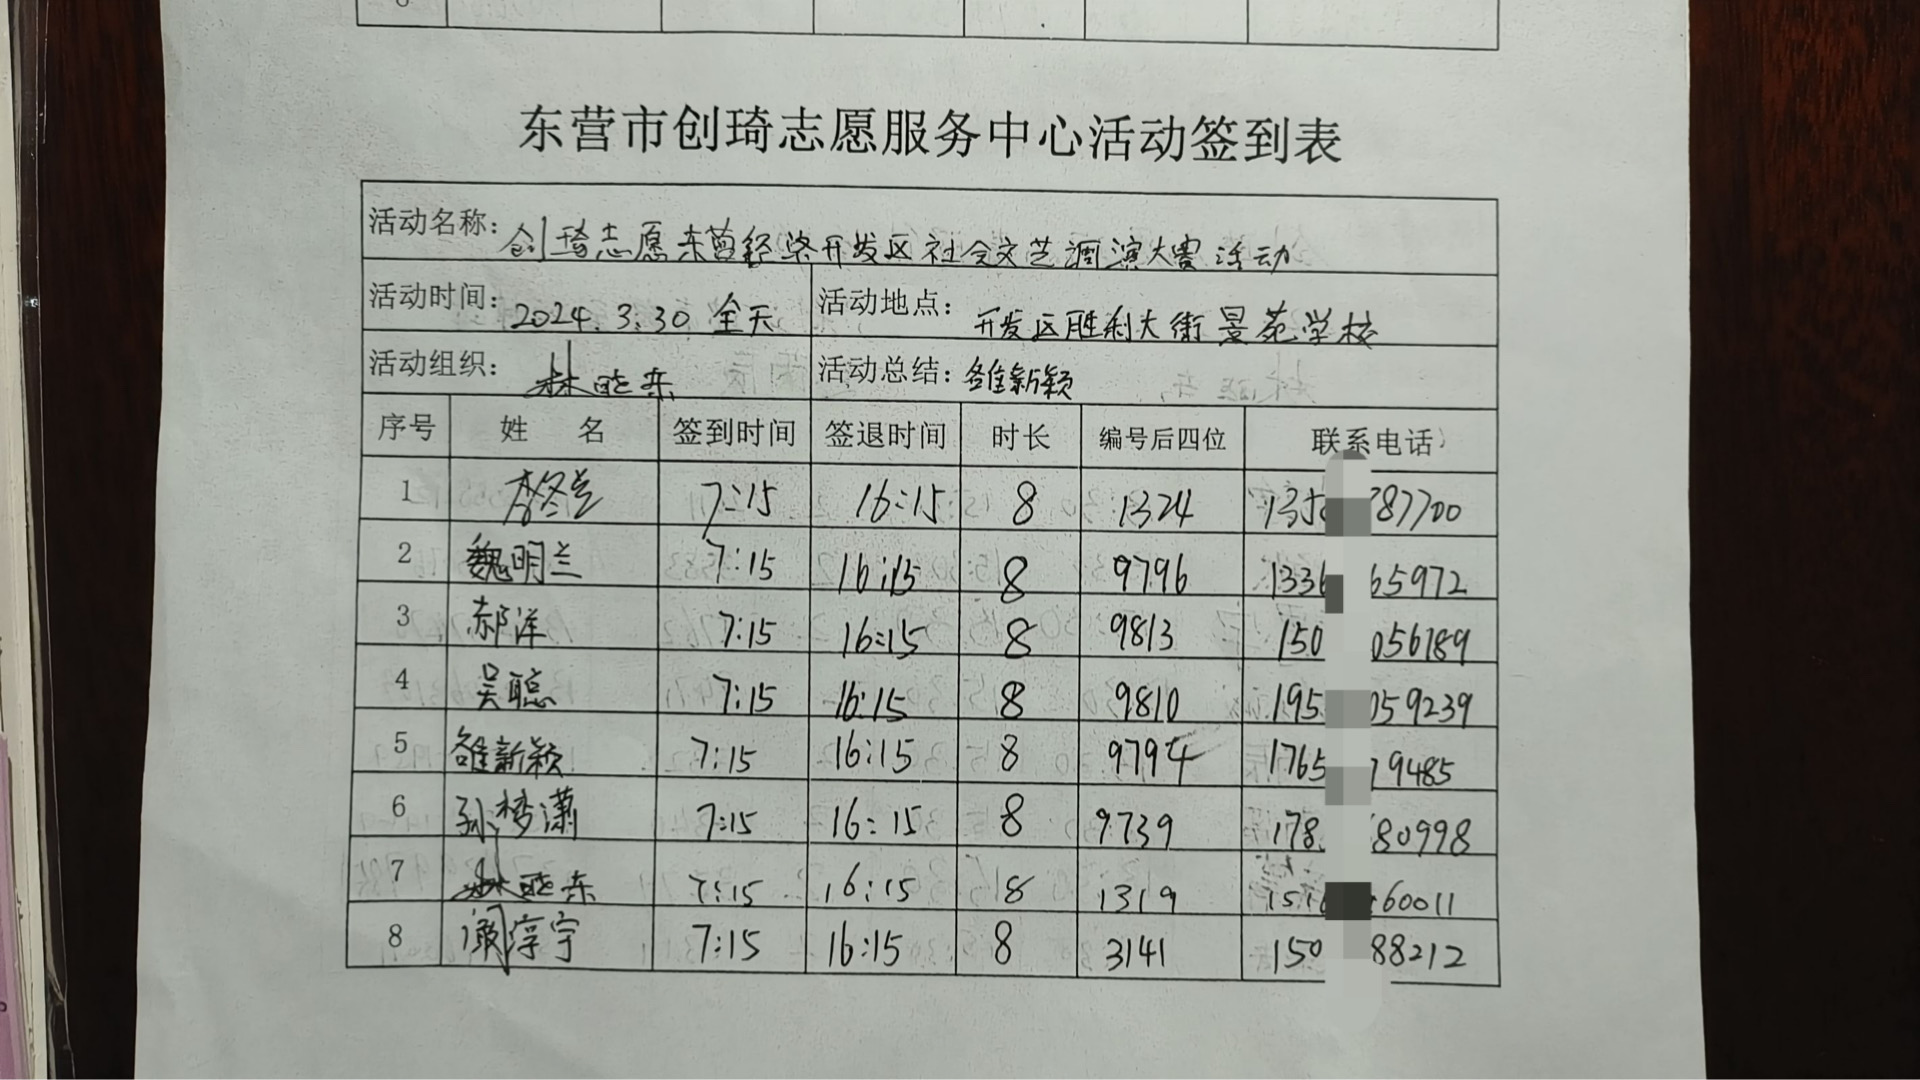 东营市创琦志愿服务中心活动签到表
活动名称: 创琦志愿东营经济开发区社会文艺调演大赛活动
活动时间: 2024.3.30 全天 活动地点: 开发区胜利大街景苑学校
活动组织: 林晓东 活动总结: 雒新颖
序号 姓 名 签到时间 签退时间 时长 编号后四位 联系电话
1 李冬兰 7:15 16:15 8 1324 135 87700
2 魏明兰 7:15 16:15 8 9796 1336 65972
3 郝洋 7:15 16:15 8 9813 150 056189
4 吴聪 7:15 16:15 8 9810 195 059239
5 雒新颖 7:15 16:15 8 9794 1765 9485
6 孙梦潇 7:15 16:15 8 9739 178 80998
7 林晓东 7:15 16:15 8 1319 151 60011
8 阚淳宇 7:15 16:15 8 3141 150 88212